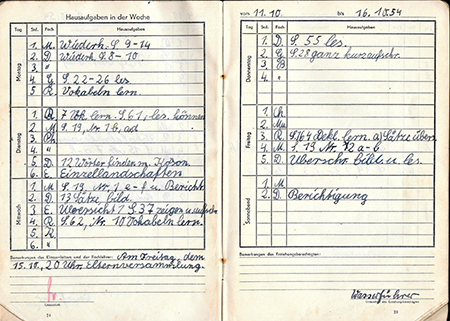 Hausaufgaben in der Woche
Tag Std. Fach
Montag
1. M. Wiederh. S. 9-14
2. D. Wiederh. S. 8-10.
3. "
4. G S. 22-26 les.
5. R. Vokabeln lern.
Dienstag
1. R. 7 Vok. lern. S. 61, les. können
2. M. S. 19, Nr. 1 b, ad
3. Ph.
4. "
5. D. 12 Wörter finden m.
6. E. Einzellandschaften
Mittwoch
1. M. S. 19, Nr. 1 e-f u. Bericht.
2. D. 13 Sätze bild.
3. E. Übersicht S. 37 zeigen u.
4. R. S. 62, Nr. 10 Vokabeln lern.
5. K
6. "
Bemerkungen des Klassenleiters und der Fachlehrer: Am Freitag, dem
15. 10., 20 Uhr Elternversammlung.
Unterschrift
vom 11. 10. bis 16. 10. 54
Tag Std. Fach
Donnerstag
1. D. S. 55 les.
2. G S. 28 ganz kurz aufschr.
3.
4. "
Freitag
1. Ch.
2. Mu.
3. R. S. 164 Dekl. lern. a) Sätze übers.
4. M. S. 19 Nr. 12 a-b
5. D. Überschr. bild. u. les.
Sonnabend
1. M
2. D. Berichtigung
Bemerkungen des Erziehungsberechtigten:
Wasserführer
Unterschrift des Erziehungsberechtigten